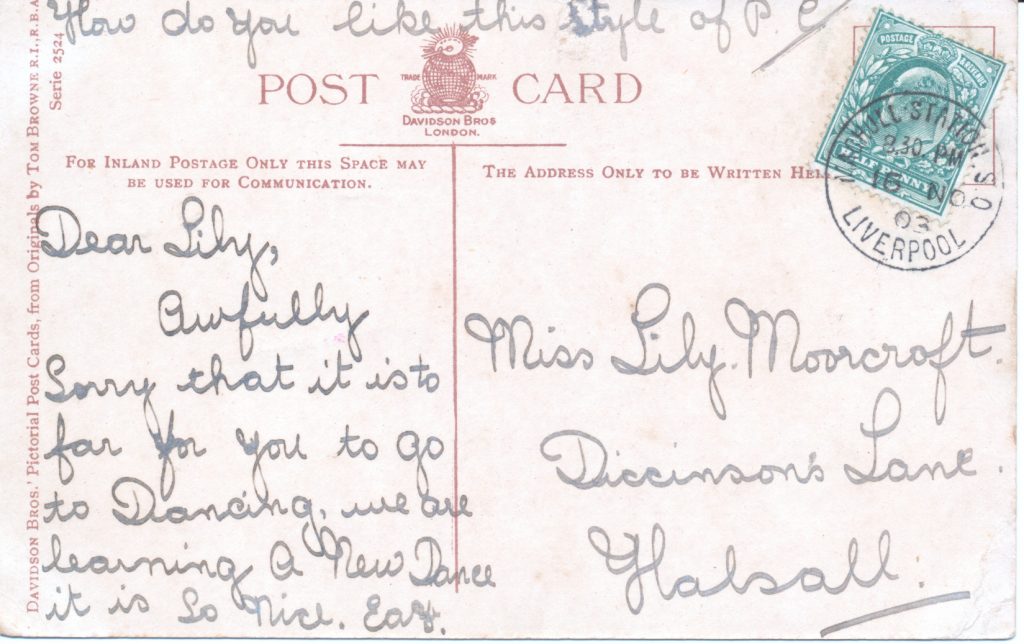 How do you like this style of P. C
POST CARD
TRADE MARK
DAVIDSON BROS
LONDON.
FOR INLAND POSTAGE ONLY THIS SPACE MAY
BE USED FOR COMMUNICATION.
THE ADDRESS ONLY TO BE WRITTEN HERE
POSTAGE & REVENUE
HALF PENNY
MAGHULL STATION S.O
8.30 PM
16 NO
03
LIVERPOOL
DAVIDSON BROS.' Pictorial Post Cards, from Originals by TOM BROWNE R.I., R.B.A
Serie 2524
Dear Lily,
Awfully
Sorry that it is to
far for you to go
to Dancing, we are
learning A New Dance
it is So Nice.
Miss Lily. Moorcroft.
Diccinson's Lane.
Halsall.